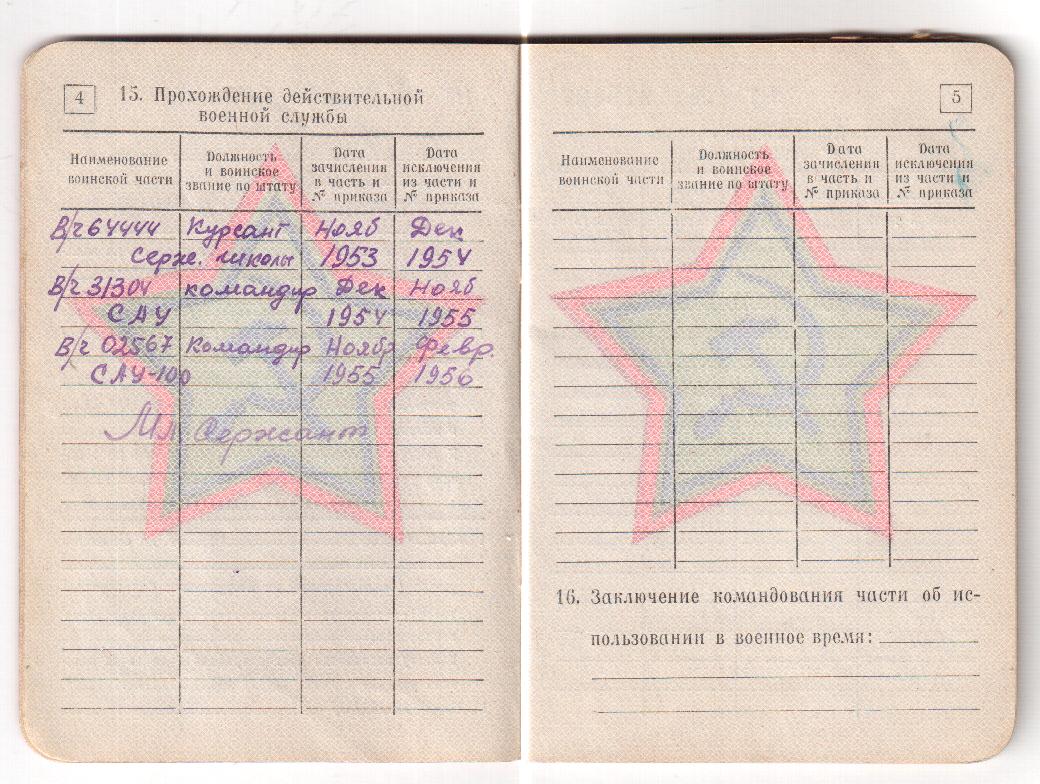 4
15. Прохождение действительной
военной службы
Наименование
воинской части
Должность
и воинское
звание по штату
Дата
зачисления
в часть и
№ приказа
Дата
исключения
из части и
№ приказа
В/ч 64444 Курсант Нояб Дек
Серж. школы 1953 1954
В/ч 31304 командир Дек Нояб
САУ 1954 1955
В/ч 02567 Командир Ноябр Февр.
САУ-100 1955 1956
Мл. Сержант
5
Наименование
воинской части
Должность
и воинское
звание по штату
Дата
зачисления
в часть и
№ приказа
Дата
исключения
из части и
№ приказа
16. Заключение командования части об ис-
пользовании в военное время: